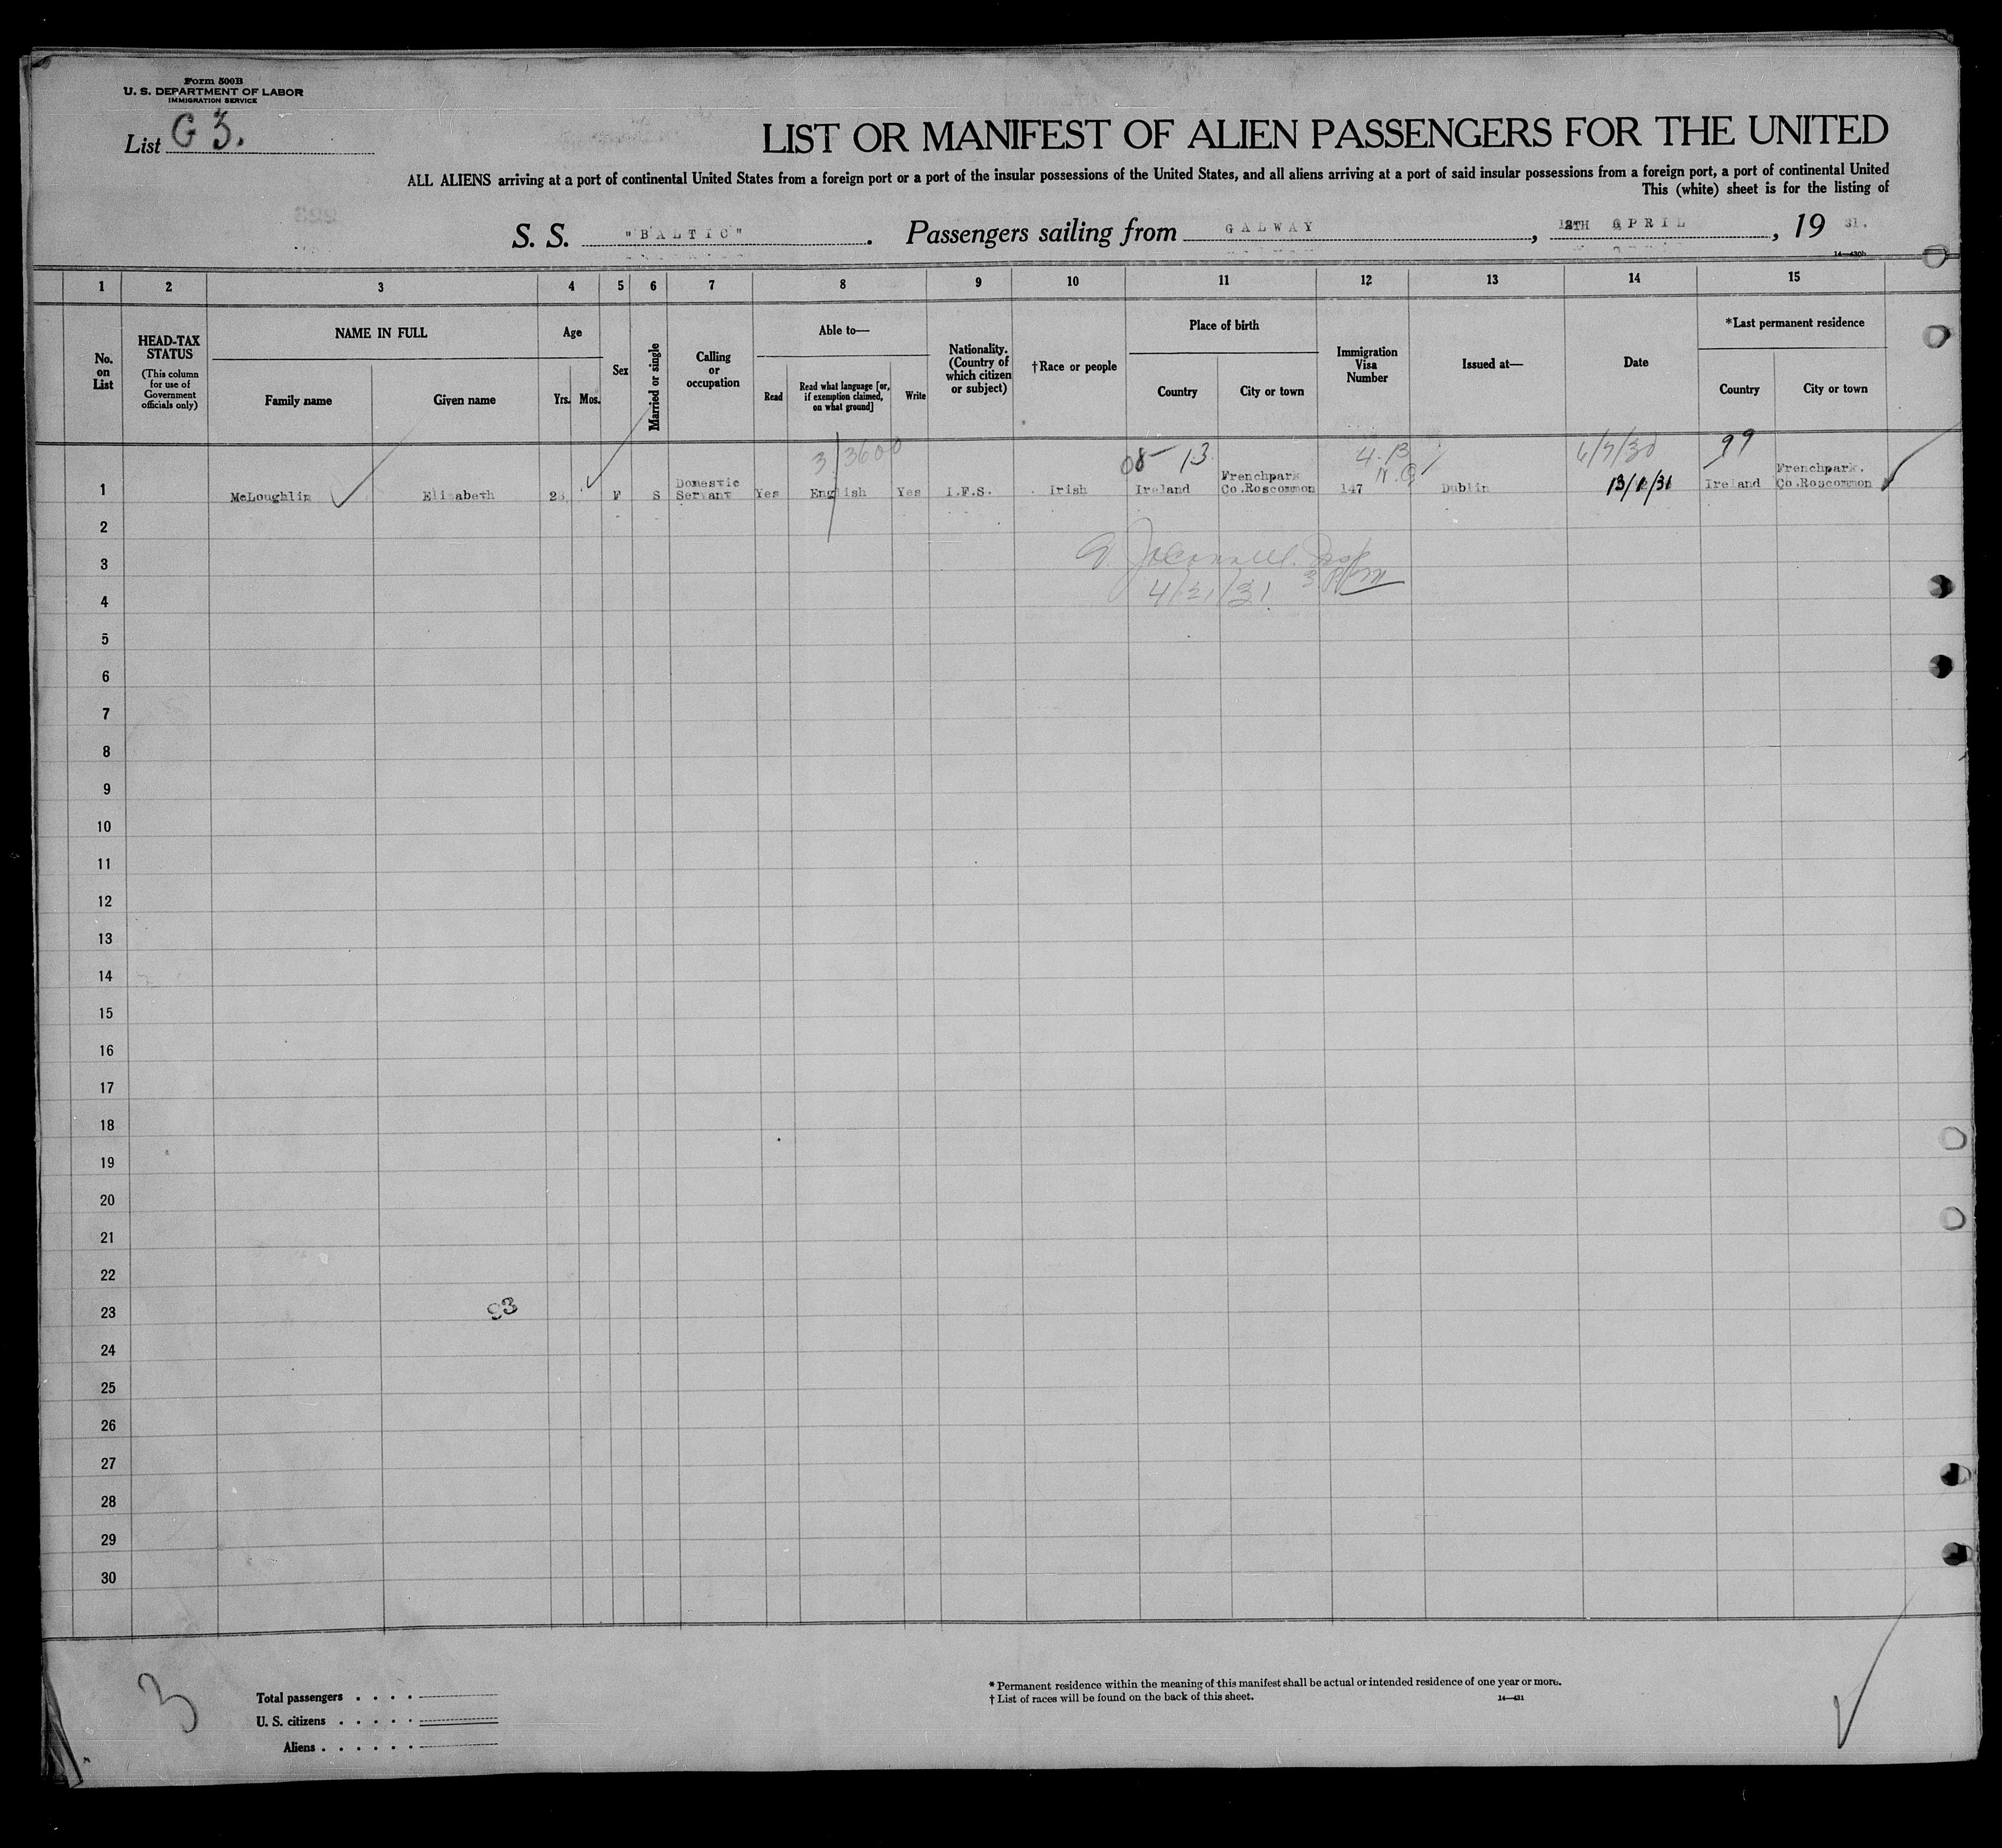 Form 500B
U. S. DEPARTMENT OF LABOR
IMMIGRATION SERVICE
List G 3.
LIST OR MANIFEST OF ALIEN PASSENGERS FOR THE UNITED
ALL ALIENS arriving at a port of continental United States from a foreign port or a port of the insular possessions of the United States, and all aliens arriving at a port of said insular possessions from a foreign port, a port of continental United
This (white) sheet is for the listing of
S. S. "BALTIC". Passengers sailing from GALWAY, 12TH APRIL, 19 31.
14—430b
1 2 3 4 5 6 7 8 9 10 11 12 13 14 15
No. on List
HEAD-TAX STATUS
(This column for use of Government officials only)
NAME IN FULL
Family name
Given name
Age
Yrs. Mos.
Sex
Married or single
Calling or occupation
Able to—
Read
Read what language [or, if exemption claimed, on what ground]
Write
Nationality. (Country of which citizen or subject)
†Race or people
Place of birth
Country
City or town
Immigration Visa Number
Issued at—
Date
*Last permanent residence
Country
City or town
3/3600 08 13 4.B 6/7/30 99
1 McLoughlin Elizabeth F S Domestic Servant Yes English Yes I.F.S. Irish Ireland Frenchpark Co.Roscommon 147 Dublin Ireland Frenchpark. Co.Roscommon
2
3
4 4/21/31
5
6
7
8
9
10
11
12
13
14
15
16
17
18
19
20
21
22
23
24
25
26
27
28
29
30
3
Total passengers
U. S. citizens
Aliens
* Permanent residence within the meaning of this manifest shall be actual or intended residence of one year or more.
† List of races will be found on the back of this sheet.
14—431